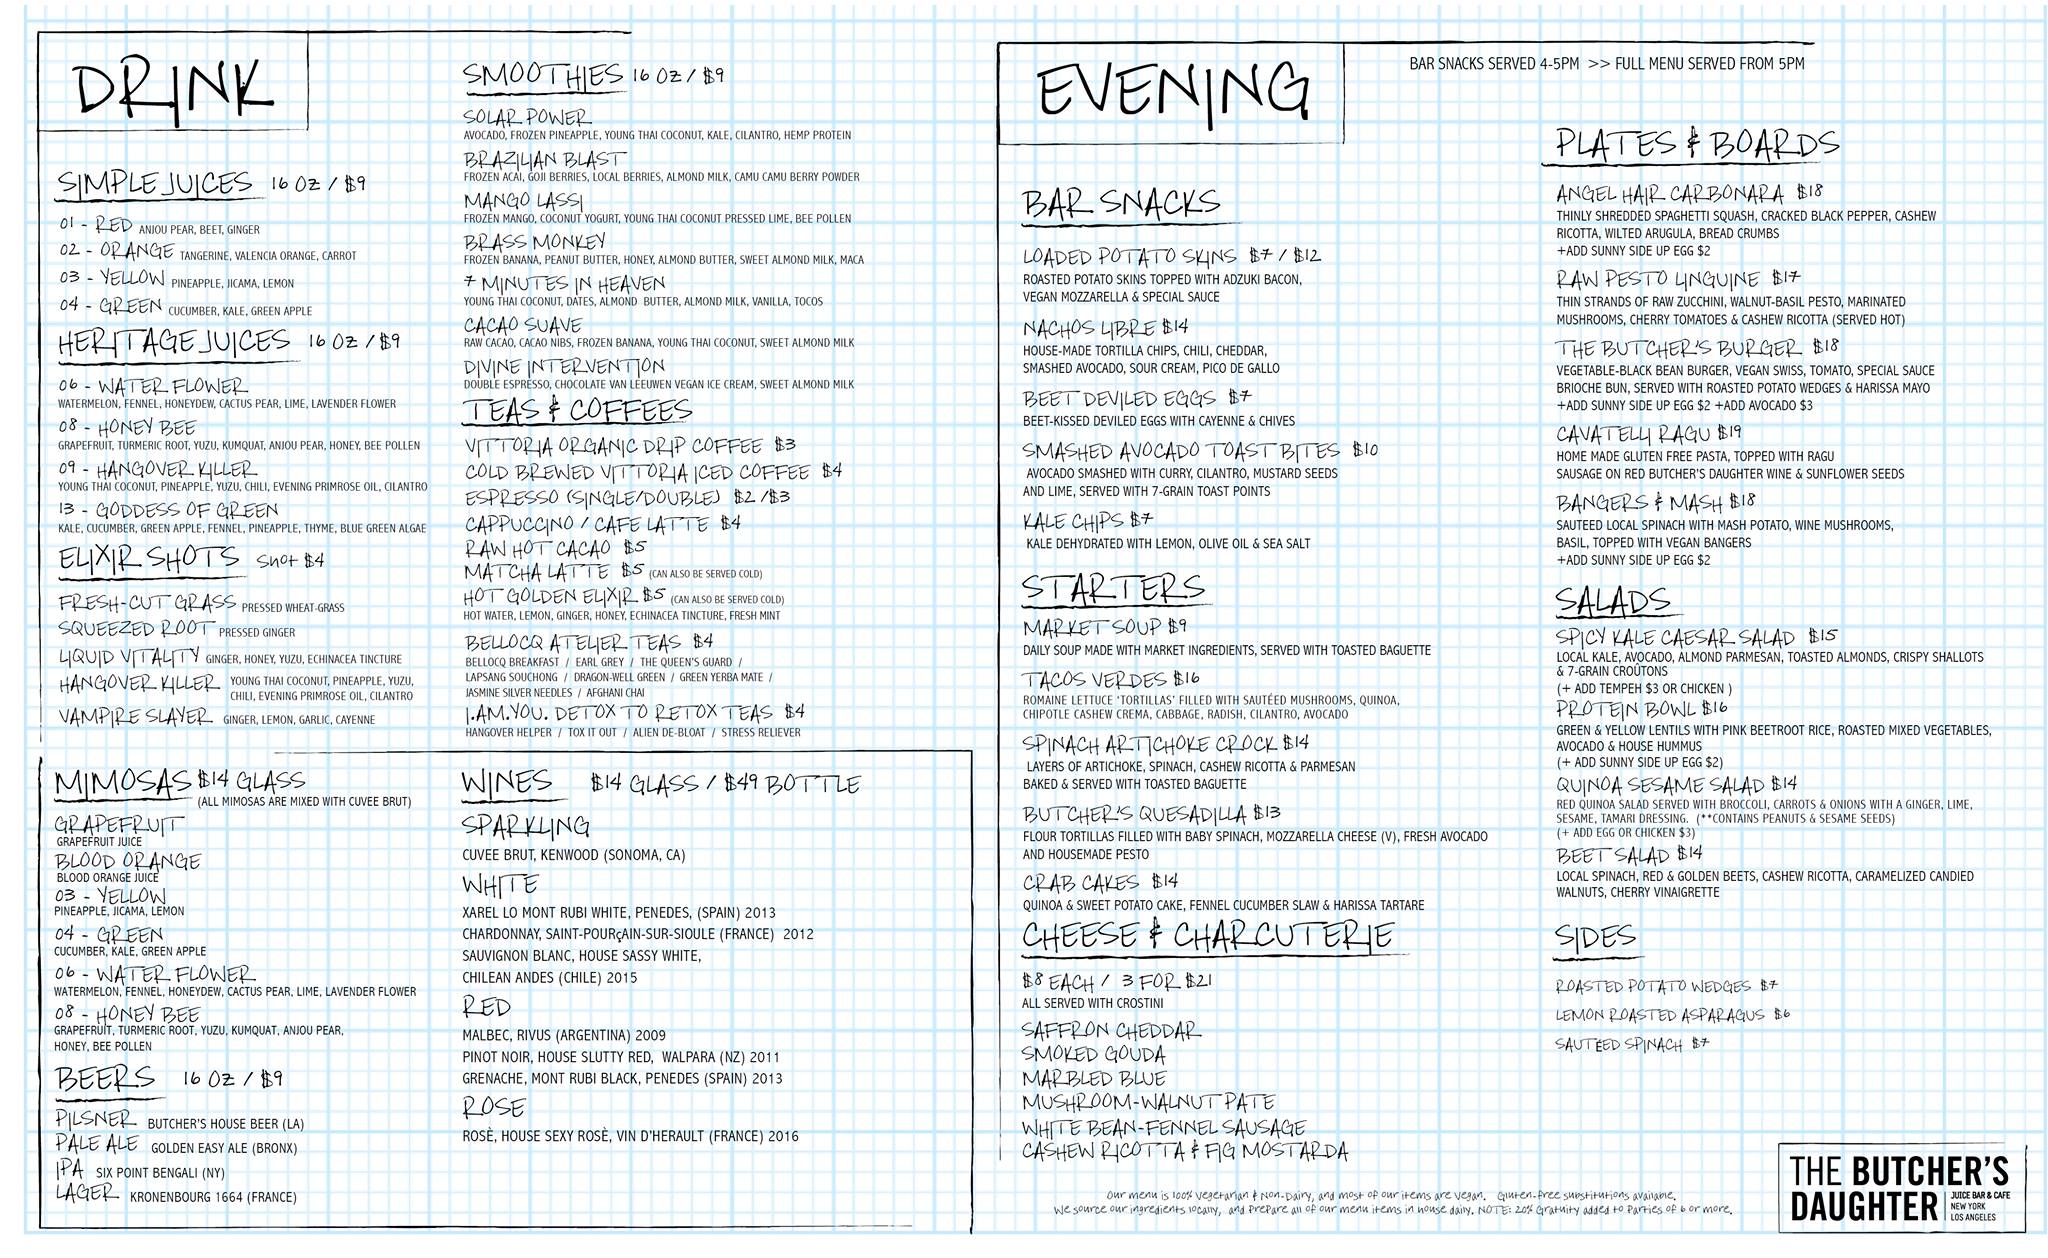 DRINK
SIMPLE JUICES 16 OZ / $9
01 - RED ANJOU PEAR, BEET, GINGER
02 - ORANGE TANGERINE, VALENCIA ORANGE, CARROT
03 - YELLOW PINEAPPLE, JICAMA, LEMON
04 - GREEN CUCUMBER, KALE, GREEN APPLE
HERITAGE JUICES 16 OZ / $9
06 - WATER FLOWER
WATERMELON, FENNEL, HONEYDEW, CACTUS PEAR, LIME, LAVENDER FLOWER
08 - HONEY BEE
GRAPEFRUIT, TURMERIC ROOT, YUZU, KUMQUAT, ANJOU PEAR, HONEY, BEE POLLEN
09 - HANGOVER KILLER
YOUNG THAI COCONUT, PINEAPPLE, YUZU, CHILI, EVENING PRIMROSE OIL, CILANTRO
13 - GODDESS OF GREEN
KALE, CUCUMBER, GREEN APPLE, FENNEL, PINEAPPLE, THYME, BLUE GREEN ALGAE
ELIXIR SHOTS Shot $4
FRESH-CUT GRASS PRESSED WHEAT-GRASS
SQUEEZED ROOT PRESSED GINGER
LIQUID VITALITY GINGER, HONEY, YUZU, ECHINACEA TINCTURE
HANGOVER KILLER YOUNG THAI COCONUT, PINEAPPLE, YUZU,
CHILI, EVENING PRIMROSE OIL, CILANTRO
VAMPIRE SLAYER GINGER, LEMON, GARLIC, CAYENNE
SMOOTHIES 16 OZ / $9
SOLAR POWER
AVOCADO, FROZEN PINEAPPLE, YOUNG THAI COCONUT, KALE, CILANTRO, HEMP PROTEIN
BRAZILIAN BLAST
FROZEN ACAI, GOJI BERRIES, LOCAL BERRIES, ALMOND MILK, CAMU CAMU BERRY POWDER
MANGO LASSI
FROZEN MANGO, COCONUT YOGURT, YOUNG THAI COCONUT PRESSED LIME, BEE POLLEN
BRASS MONKEY
FROZEN BANANA, PEANUT BUTTER, HONEY, ALMOND BUTTER, SWEET ALMOND MILK, MACA
7 MINUTES IN HEAVEN
YOUNG THAI COCONUT, DATES, ALMOND BUTTER, ALMOND MILK, VANILLA, TOCOS
CACAO SUAVE
RAW CACAO, CACAO NIBS, FROZEN BANANA, YOUNG THAI COCONUT, SWEET ALMOND MILK
DIVINE INTERVENTION
DOUBLE ESPRESSO, CHOCOLATE VAN LEEUWEN VEGAN ICE CREAM, SWEET ALMOND MILK
TEAS & COFFEES
VITTORIA ORGANIC DRIP COFFEE $3
COLD BREWED VITTORIA ICED COFFEE $4
ESPRESSO (SINGLE/DOUBLE) $2 /$3
CAPPUCCINO / CAFE LATTE $4
RAW HOT CACAO $5
MATCHA LATTE $5 (CAN ALSO BE SERVED COLD)
HOT GOLDEN ELIXIR $5 (CAN ALSO BE SERVED COLD)
HOT WATER, LEMON, GINGER, HONEY, ECHINACEA TINCTURE, FRESH MINT
BELLOCQ ATELIER TEAS $4
BELLOCQ BREAKFAST / EARL GREY / THE QUEEN'S GUARD /
LAPSANG SOUCHONG / DRAGON-WELL GREEN / GREEN YERBA MATE /
JASMINE SILVER NEEDLES / AFGHANI CHAI
I.AM.YOU. DETOX TO RETOX TEAS $4
HANGOVER HELPER / TOX IT OUT / ALIEN DE-BLOAT / STRESS RELIEVER
MIMOSAS $14 GLASS
(ALL MIMOSAS ARE MIXED WITH CUVEE BRUT)
GRAPEFRUIT
GRAPEFRUIT JUICE
BLOOD ORANGE
BLOOD ORANGE JUICE
03 - YELLOW
PINEAPPLE, JICAMA, LEMON
04 - GREEN
CUCUMBER, KALE, GREEN APPLE
06 - WATER FLOWER
WATERMELON, FENNEL, HONEYDEW, CACTUS PEAR, LIME, LAVENDER FLOWER
08 - HONEY BEE
GRAPEFRUIT, TURMERIC ROOT, YUZU, KUMQUAT, ANJOU PEAR,
HONEY, BEE POLLEN
BEERS 16 OZ / $9
PILSNER BUTCHER'S HOUSE BEER (LA)
PALE ALE GOLDEN EASY ALE (BRONX)
IPA SIX POINT BENGALI (NY)
LAGER KRONENBOURG 1664 (FRANCE)
WINES $14 GLASS / $49 BOTTLE
SPARKLING
CUVEE BRUT, KENWOOD (SONOMA, CA)
WHITE
XAREL LO MONT RUBI WHITE, PENEDES, (SPAIN) 2013
CHARDONNAY, SAINT-POURçAIN-SUR-SIOULE (FRANCE) 2012
SAUVIGNON BLANC, HOUSE SASSY WHITE,
CHILEAN ANDES (CHILE) 2015
RED
MALBEC, RIVUS (ARGENTINA) 2009
PINOT NOIR, HOUSE SLUTTY RED, WALPARA (NZ) 2011
GRENACHE, MONT RUBI BLACK, PENEDES (SPAIN) 2013
ROSE
ROSÈ, HOUSE SEXY ROSÈ, VIN D'HERAULT (FRANCE) 2016
EVENING
BAR SNACKS SERVED 4-5PM >> FULL MENU SERVED FROM 5PM
BAR SNACKS
LOADED POTATO SKINS $7 / $12
ROASTED POTATO SKINS TOPPED WITH ADZUKI BACON,
VEGAN MOZZARELLA & SPECIAL SAUCE
NACHOS LIBRE $14
HOUSE-MADE TORTILLA CHIPS, CHILI, CHEDDAR,
SMASHED AVOCADO, SOUR CREAM, PICO DE GALLO
BEET DEVILED EGGS $7
BEET-KISSED DEVILED EGGS WITH CAYENNE & CHIVES
SMASHED AVOCADO TOAST BITES $10
AVOCADO SMASHED WITH CURRY, CILANTRO, MUSTARD SEEDS
AND LIME, SERVED WITH 7-GRAIN TOAST POINTS
KALE CHIPS $7
KALE DEHYDRATED WITH LEMON, OLIVE OIL & SEA SALT
STARTERS
MARKET SOUP $9
DAILY SOUP MADE WITH MARKET INGREDIENTS, SERVED WITH TOASTED BAGUETTE
TACOS VERDES $16
ROMAINE LETTUCE 'TORTILLAS' FILLED WITH SAUTÉED MUSHROOMS, QUINOA,
CHIPOTLE CASHEW CREMA, CABBAGE, RADISH, CILANTRO, AVOCADO
SPINACH ARTICHOKE CROCK $14
LAYERS OF ARTICHOKE, SPINACH, CASHEW RICOTTA & PARMESAN
BAKED & SERVED WITH TOASTED BAGUETTE
BUTCHER'S QUESADILLA $13
FLOUR TORTILLAS FILLED WITH BABY SPINACH, MOZZARELLA CHEESE (V), FRESH AVOCADO
AND HOUSEMADE PESTO
CRAB CAKES $14
QUINOA & SWEET POTATO CAKE, FENNEL CUCUMBER SLAW & HARISSA TARTARE
CHEESE & CHARCUTERIE
$8 EACH / 3 FOR $21
ALL SERVED WITH CROSTINI
SAFFRON CHEDDAR
SMOKED GOUDA
MARBLED BLUE
MUSHROOM-WALNUT PATE
WHITE BEAN-FENNEL SAUSAGE
CASHEW RICOTTA & FIG MOSTARDA
PLATES & BOARDS
ANGEL HAIR CARBONARA $18
THINLY SHREDDED SPAGHETTI SQUASH, CRACKED BLACK PEPPER, CASHEW
RICOTTA, WILTED ARUGULA, BREAD CRUMBS
+ADD SUNNY SIDE UP EGG $2
RAW PESTO LINGUINE $17
THIN STRANDS OF RAW ZUCCHINI, WALNUT-BASIL PESTO, MARINATED
MUSHROOMS, CHERRY TOMATOES & CASHEW RICOTTA (SERVED HOT)
THE BUTCHER'S BURGER $18
VEGETABLE-BLACK BEAN BURGER, VEGAN SWISS, TOMATO, SPECIAL SAUCE
BRIOCHE BUN, SERVED WITH ROASTED POTATO WEDGES & HARISSA MAYO
+ADD SUNNY SIDE UP EGG $2 +ADD AVOCADO $3
CAVATELLI RAGU $19
HOME MADE GLUTEN FREE PASTA, TOPPED WITH RAGU
SAUSAGE ON RED BUTCHER'S DAUGHTER WINE & SUNFLOWER SEEDS
BANGERS & MASH $18
SAUTEED LOCAL SPINACH WITH MASH POTATO, WINE MUSHROOMS,
BASIL, TOPPED WITH VEGAN BANGERS
+ADD SUNNY SIDE UP EGG $2
SALADS
SPICY KALE CAESAR SALAD $15
LOCAL KALE, AVOCADO, ALMOND PARMESAN, TOASTED ALMONDS, CRISPY SHALLOTS
& 7-GRAIN CROÛTONS
(+ ADD TEMPEH $3 OR CHICKEN )
PROTEIN BOWL $16
GREEN & YELLOW LENTILS WITH PINK BEETROOT RICE, ROASTED MIXED VEGETABLES,
AVOCADO & HOUSE HUMMUS
(+ ADD SUNNY SIDE UP EGG $2)
QUINOA SESAME SALAD $14
RED QUINOA SALAD SERVED WITH BROCCOLI, CARROTS & ONIONS WITH A GINGER, LIME,
SESAME, TAMARI DRESSING. (**CONTAINS PEANUTS & SESAME SEEDS)
(+ ADD EGG OR CHICKEN $3)
BEET SALAD $14
LOCAL SPINACH, RED & GOLDEN BEETS, CASHEW RICOTTA, CARAMELIZED CANDIED
WALNUTS, CHERRY VINAIGRETTE
SIDES
ROASTED POTATO WEDGES $7
LEMON ROASTED ASPARAGUS $6
SAUTÉED SPINACH $7
Our menu is 100% Vegetarian & Non-Dairy, and most of our items are Vegan. Gluten-free substitutions available.
We source our ingredients locally, and prepare all of our menu items in house daily. NOTE: 20% Gratuity added to Parties of 6 or more.
THE BUTCHER'S
DAUGHTER
JUICE BAR & CAFE
NEW YORK
LOS ANGELES